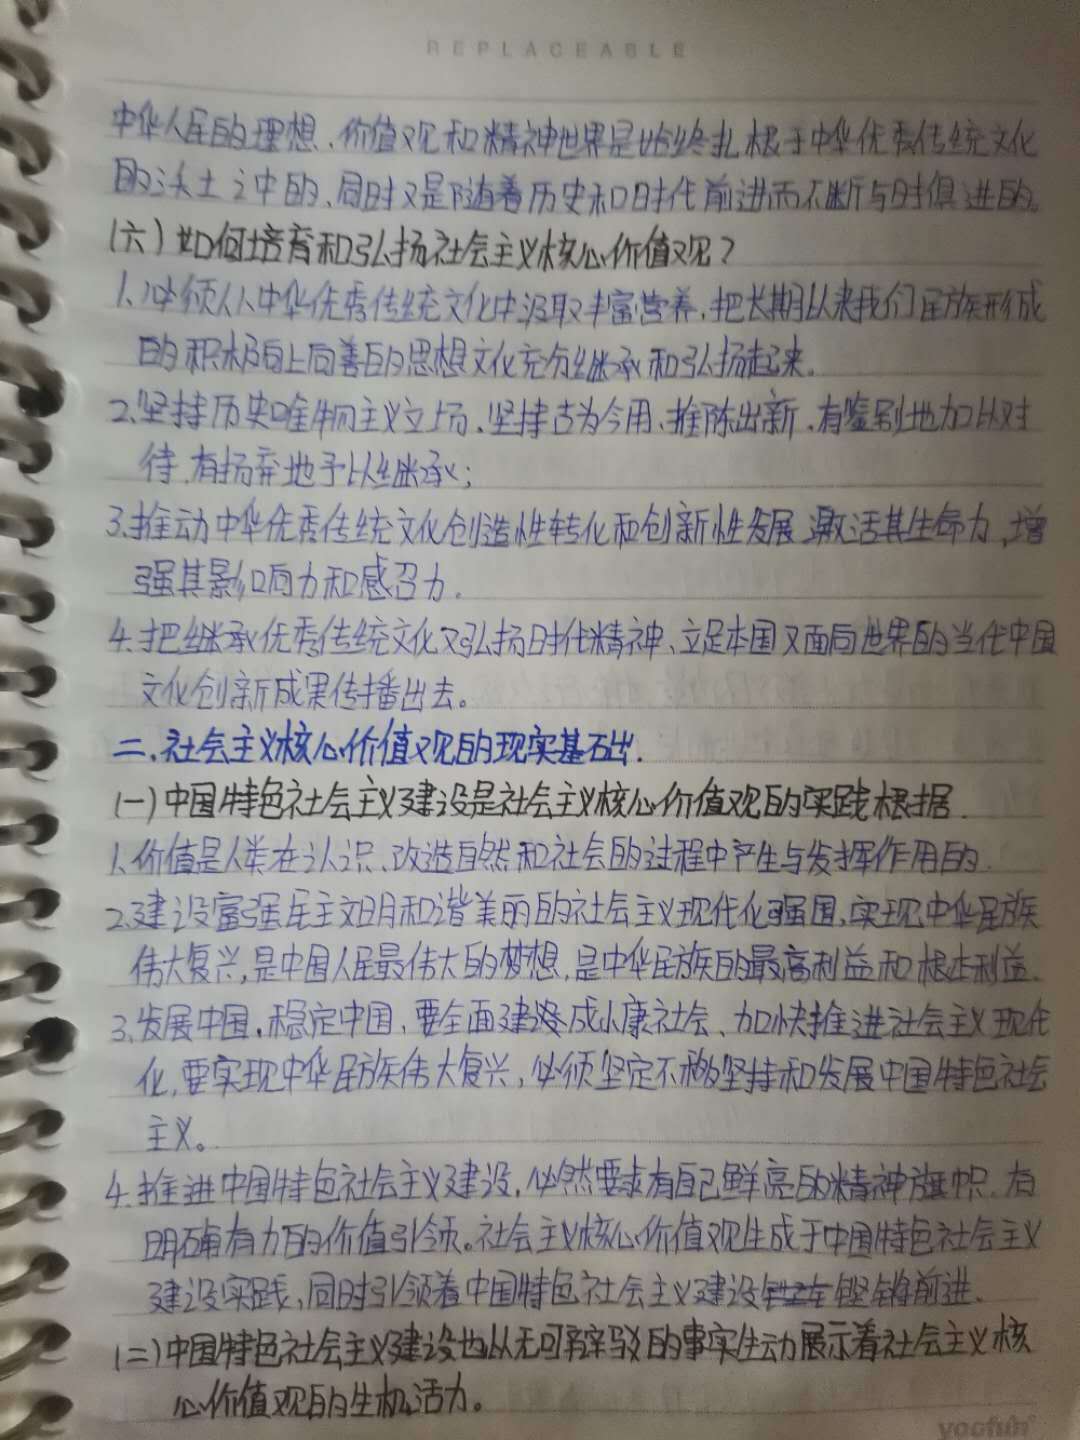 REPLACEABLE
中华人民的理想、价值观和精神世界是始终扎根于中华优秀传统文化
的沃土之中的、同时又是随着历史和时代前进而不断与时俱进的。
(六)如何培育和弘扬社会主义核心价值观？
1、必须从中华优秀传统文化中汲取丰富营养，把长期以来我们民族形成
的积极向上向善的思想文化充分继承和弘扬起来。
2、坚持历史唯物主义立场、坚持古为今用、推陈出新、有鉴别地加以对
待、有扬弃地予以继承；
3、推动中华优秀传统文化创造性转化和创新性发展、激活其生命力，增
强其影响力和感召力。
4、把继承优秀传统文化又弘扬时代精神、立足本国又面向世界的当代中国
文化创新成果传播出去。
二、社会主义核心价值观的现实基础.
(一)中国特色社会主义建设是社会主义核心价值观的实践根据.
1、价值是人类在认识、改造自然和社会的过程中产生与发挥作用的.
2、建设富强民主文明和谐美丽的社会主义现代化强国，实现中华民族
伟大复兴，是中国人民最伟大的梦想，是中华民族的最高利益和根本利益.
3、发展中国、稳定中国、要全面建成小康社会、加快推进社会主义现代
化，要实现中华民族伟大复兴，必须坚定不移坚持和发展中国特色社会
主义。
4、推进中国特色社会主义建设，必然要求有自己鲜亮的精神旗帜、有
明确有力的价值引领。社会主义核心价值观生成于中国特色社会主义
建设实践，同时引领着中国特色社会主义建设铿锵前进、
(二)中国特色社会主义建设也从无可辩驳的事实生动展示着社会主义核
心价值观的生机活力。
yoofun